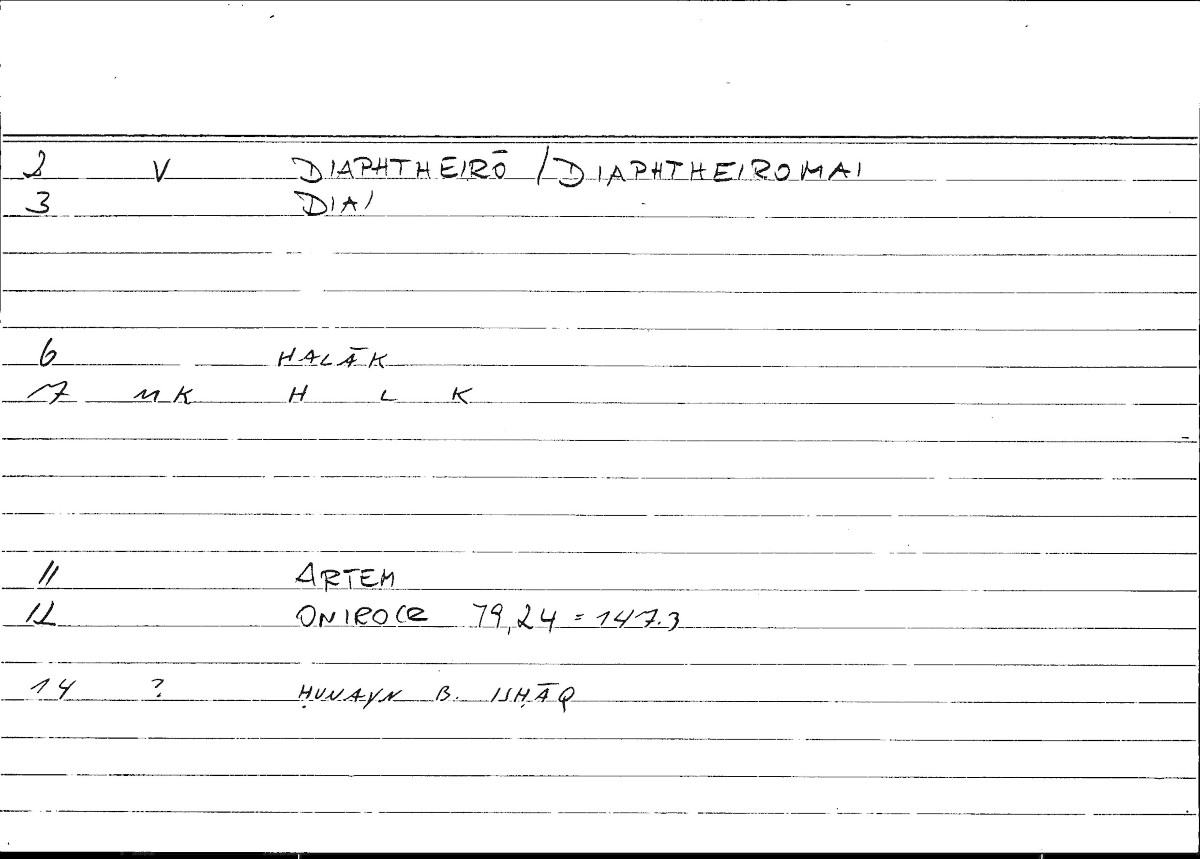 2 V DIAPHTHEIRŌ / DIAPHTHEIROMAI
3 DIA/
6 HALĀK
17 MK H L K
11 ARTEM
12 ONIROCR 79,24 = 147.3
14 ? ḤUNAYN B. ISḤĀQ